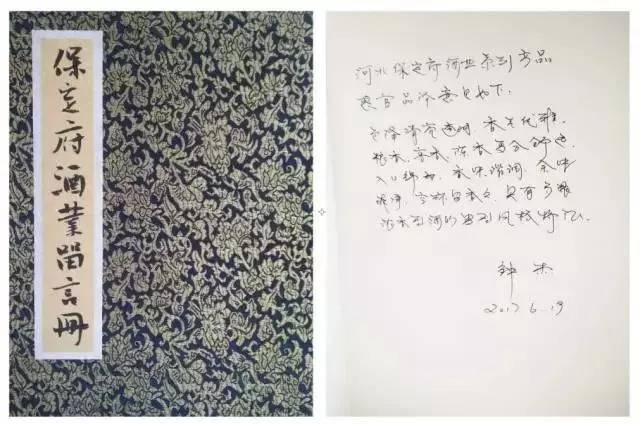 保定府酒業留言冊
河北保定府酒业系列产品
感官品评意见如下:
色泽清亮透明、香气优雅、
粮香、窖香、陈香复合舒适、
入口绵甜、香味谐调、余味
爽净、空杯留香久、具有多粮
浓香型酒的典型风格特征。
钟杰
2017.6.19